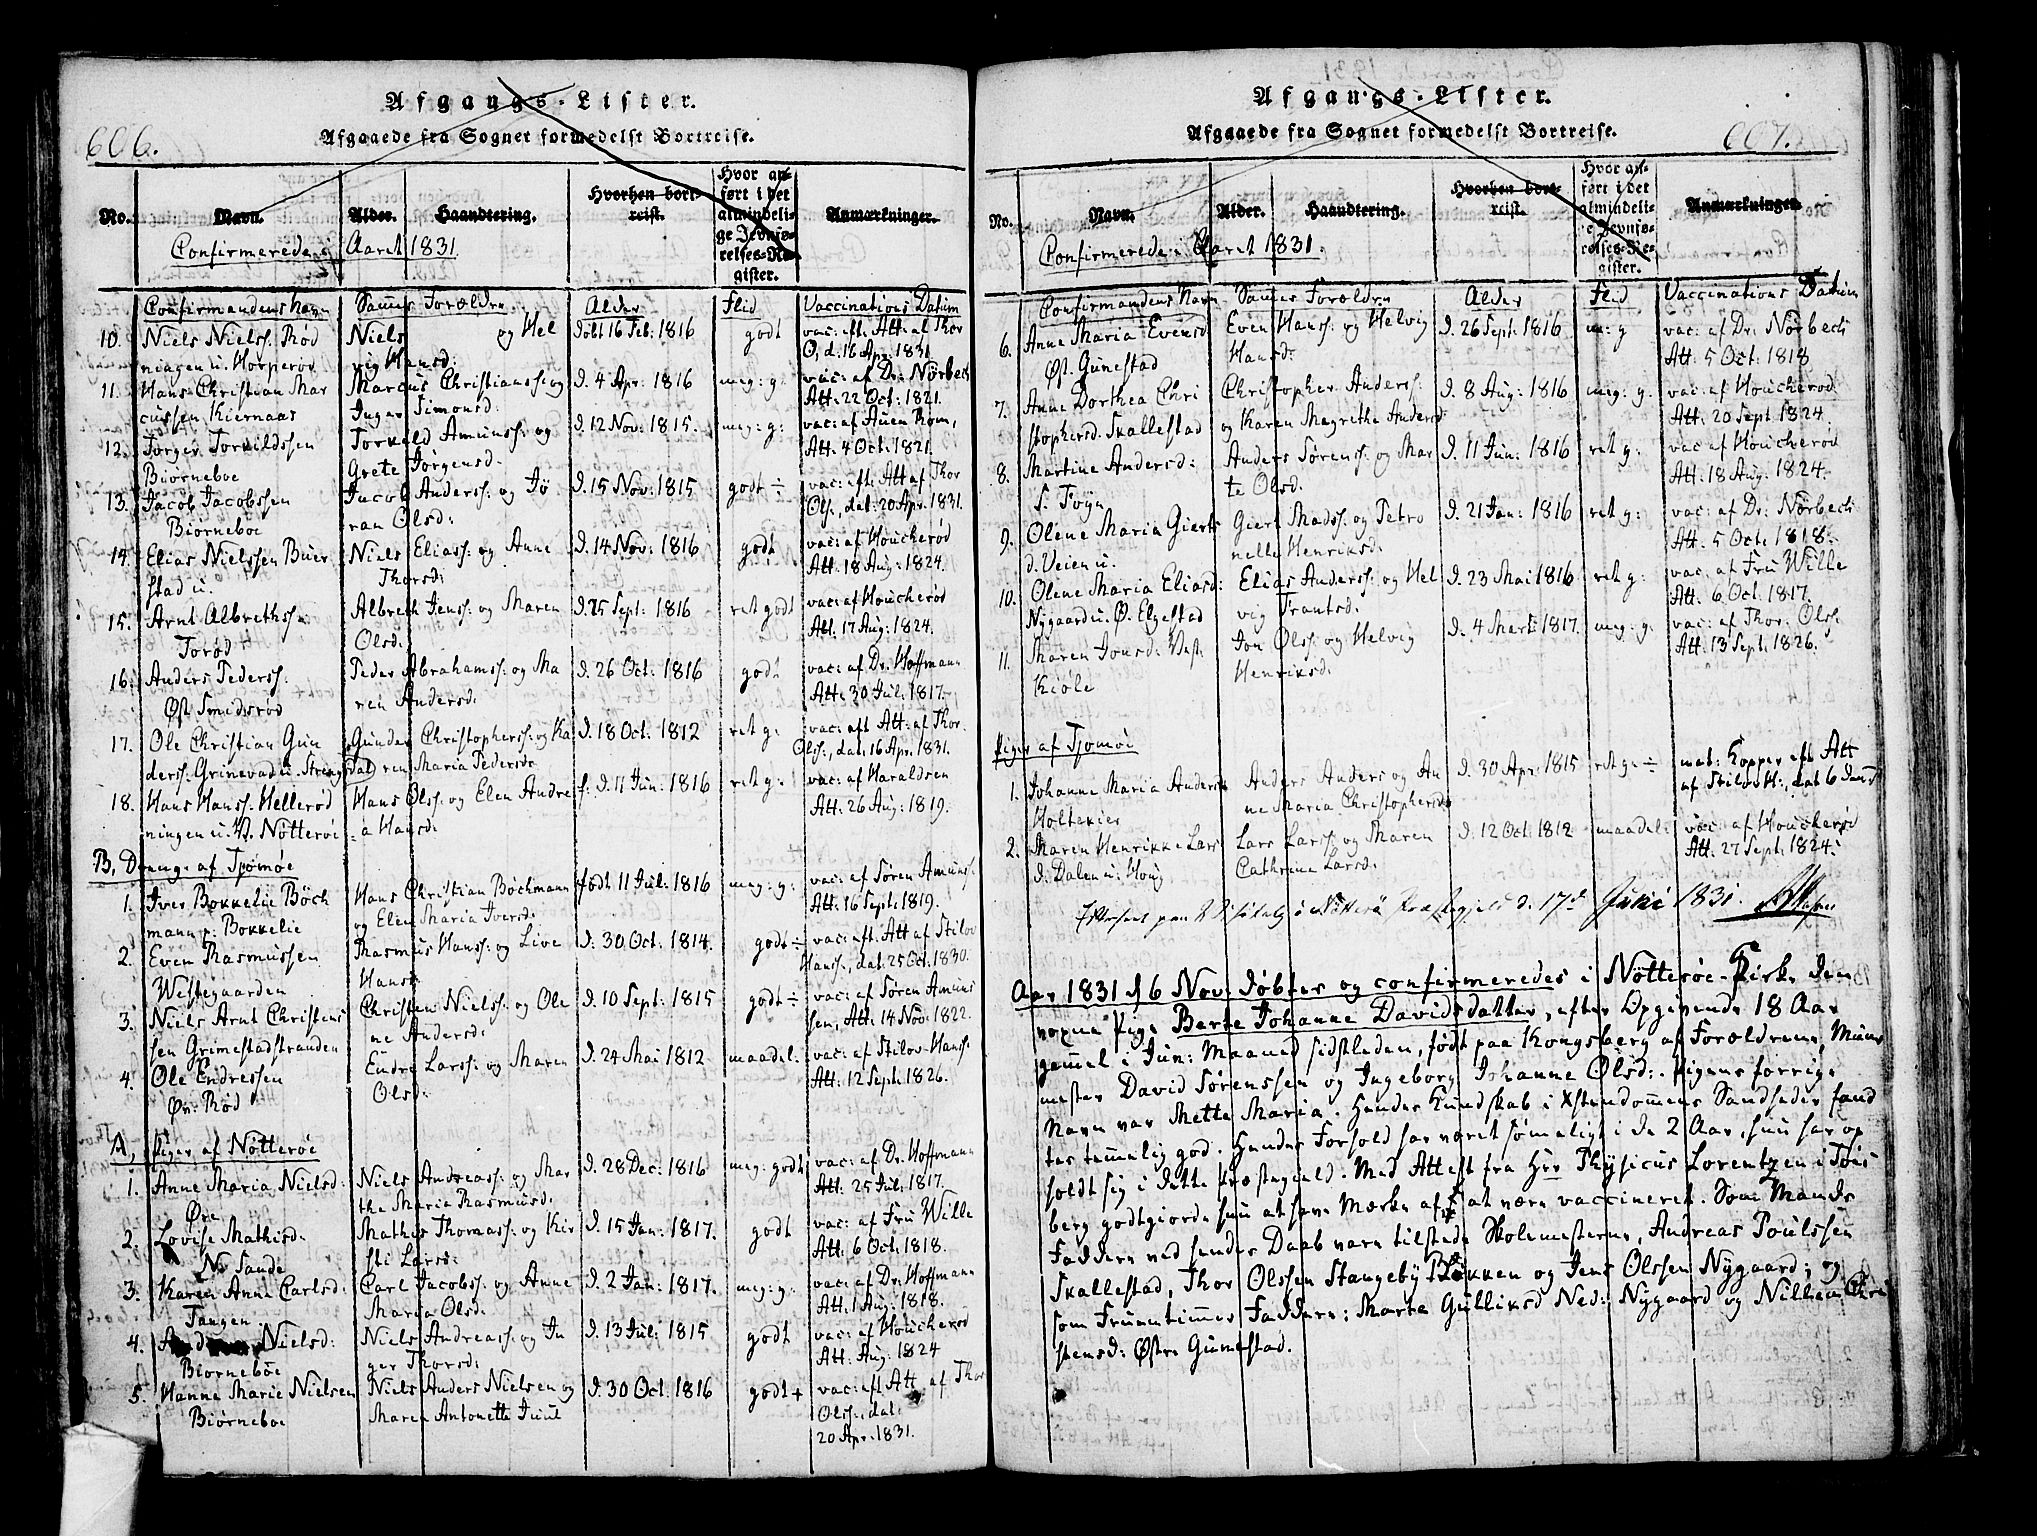 606.
Afgangs-Lister.
Afgaaede fra Sognet formedelst Bortreise.
No.
Navn.
Alder.
Haandtering.
Hvorhen bortreist.
Hvor anført i det almindelige Jevnførelses-Register.
Anmærkninger.
Confirmerede i Aaret 1831.
Confirmandens Navn Sammes Forældre Alder Flid Vaccinations Datum
10. Niels Nielss. Rød Niels og Hel Döbt 16 Feb. 1816 godt vac: eft. Att: af Thor
ningen u. Horperöd vig Hansd: O, d. 16 Apr. 1831
11. Hans Christian Mar Marcus Christianss: og D. 4 Apr: 1816 meg: g: vac: af Dr: Nörbech
cussen Kiernaas Inger Simonsd: Att: 22 Oct: 1821.
12. Jörger Torkildssen Torkeld Amunss: og D. 12 Nov: 1815. meg: g: vac: af
Biörneboe Grete Jörgensd. Att: 4 Oct: 1821.
13. Jacob Jacobssen Jacob Anderss: og Jö D. 15 Nov: 1815 godt ÷ vac: eft. Att af Thor
Biörneboe ran Olsd: Ols:, dat: 20 Apr. 1831.
14. Elias Nielssen Buer Niels Eliass: og Anne D. 14 Nov: 1816 godt vac: af Houcheröd
stad u. Thorsd: Att: 18 Aug: 1824.
15. Arnt Albrethss. Albreth Jenss: og Maren D. 25 Sept: 1816 ret godt vac: af Houcheröd
Toröd Olsd: Att. 17 Aug: 1824.
16. Anders Pederss: Peder Abrahamss: og Ma D. 26 Oct: 1816 godt vac: af Dr. Hoffmann
Øst Smidsröd ren Andersd: Att: 30 Jul: 1817.
17. Ole Christian Gun Gunder Christopherss: og Ka D. 18 Oct: 1812 ret g: vac: eft Att: af Thor.
derss: Grinevad u. ren Maria Pedersd. Olss:, dat. 16 Apr. 1831.
18. Hans Hanss. Helleröd Hans Olss: og Elen Andre D. 11 Jun: 1816 ret g: vac: af Haraldsen
ningen u. N. Nötteröe a Hansd: Att: 26 Aug: 1819.
B, Dreng. af Tjömöe
1. Iver Bokkelie Böch Hans Christian Böchmann födt 11 Jul: 1816 meg: g: vac: af Sören Amuns.
mann p: Bokkelie og Elen Maria Iversd. Att: 16 Sept. 1819.
2. Even Rasmussen Rasmus Hanss: og Live D. 30 Oct: 1814. godt ÷ vac: eft. Att af Stilov
Westegaarden Hansd: Hanss:, dat. 25 Oct: 1830.
3. Niels Arnt Christens Christen Nielss: og Ole D. 10 Sept: 1815 godt ÷ vac: af Sören Amuns
sen Grimestadstranden ne Andersd: sen, Att: 14 Nov: 1822.
4. Ole Endressen Endre Larss: og Maren D. 24 Mai 1812 maadel: vac: af Stilov Hanss:
Øv: Röd Olsd: Att: 12 Sept: 1826.
A, Piger af Nötteröe
1. Anne Maria Nielsd: Niels Andreass: og Mar D. 28 Dec: 1816 meg: godt vac: af Dr. Hoffmann
Øre the Maria Rasmusd. Att: 25 Jul: 1817.
2. Lovise Mathisd: Mathis Thomass: og Kir D. 15 Jan: 1817. godt vac: af Fru Wille
No Sande sti Larsd: Att: 6 Oct: 1818.
3. Karen Anne Carlsd: Carl Jacobss: og Anne D. 2 Jan: 1817. meg: g: vac: af Dr. Hoffmann
Tangen Maria Olsd. Att: 1 Aug: 1818.
4. Nielsd: Niels Andreass: og In D. 13 Jul: 1815 godt vac: af Houcheröd
Biörneböe ger Thorsd: Att: Aug: 1824
5. Hanne Marie Nielsen Niels Anders Nielsen og D. 30 Oct: 1816 godt + vac: eft Att. af Thor
Biörneboe Maren Antonette Juul Olss:, dat:
20 Apr. 1831.
607.
Afgangs-Lister.
Afgaaede fra Sognet formedelst Bortreise.
No.
Navn.
Alder.
Haandtering.
Hvorhen bortreist.
Hvor anført i det almindelige Jevnførelses-Register.
Anmærkninger.
Confirmerede i Aaret 1831.
Confirmandens Navn Sammes Forældre Alder Flid Vaccinations Datum
6. Anne Maria Evensd Even Hanss: og Helvig D. 26 Sept: 1816 m: g vac: af Dr: Nörbech
Øst. Gunestad Hansd: Att: 5 Oct: 1818
7. Anne Dorthea Chri Christopher Anderss: D. 8 Aug: 1816 meg: g: vac: af Houcherod
stophersd. Skallestad og Karen Magrethe Andersd: Att: 20 Sept. 1824.
8. Martine Andersd: Anders Sörenss: og Mar D. 11 Jun: 1816 ret g: vac: af Houcheröd
S. Foÿn te Olsd. Att: 18 Aug: 1824.
9. Olene Maria Gierts Giert Madss: og Petro D. 21 Jan: 1816 ret g: vac: af Dr: Nörbech
d. Veien u. nelle Henriksd. Att: 5 Oct: 1818.
10. Olene Maria Eliasd: Elias Anderss: og Hel D. 23 Mai 1816 ret g: vac: af Fru Wille
Nygaard u. Ø. Elgestad vig Frantsd. Att: 6 Oct: 1817.
11. Maren Jonsd: Vest. Jon Olss: og Helvig D. 4 Marti 1817. meg: g: vac: af Thor. Olss.
Kiöle Henriksd: Att: 13 Sept: 1826.
Piger af Tjömöe
1. Johanne Maria Andersd. Anders Anders og An D. 30 Apr: 1815 ret g: ÷ nat: Kopper eft Att
Holtekier ne Maria Christophersd: af Stilov H:, dat 6
2. Maren Henrikke Lars Lars Larss: og Maren D. 12 Oct: 1812 maadel: vac: af Houcheröd
d. Dalen u. Houg Cathrine Larsd. Att: 27 Sept: 1824.
Efterseet paa Visitatz i Nötterö Præstegjeld d. 17d Junii 1831.
Aar 1831 d. 6 Nov: döbtes og confirmeredes i Nötteröe Kirke den
voxne Pige Berte Johanne Davidsdatter, efter Opgivende 18 Aar
gammel i Jun: Maaned sidstleden, född paa Kongsberg af Forældrene, Muur
mester David Sörenssen og Ingeborg Johanne Olsd:. Pigens forrige
Navn var Mette Maria. Hendes Kundskab i Xstendommens Sandheder fand
tes temmelig god. Hendes Forhold har været sömeligt i de 2 Aar, hun har op
holdt sig i dette Præstegjeld. Med Attest fra Hrr Physicus Lorentzen i Töns
berg godtgiorde hun at have Mærke af at være vaccineret. Som Mands
Faddere ved hendes Daab vare tilstede Skolemesterne, Andreas Poulssen
Skallestad, Thor Olssen Stangeby Bökken og Jens Olssen Nygaard; og
som Fruentimmer Faddere: Marte Gulliksd Ned: Nygaard og Nillem Chri
stensd: Østre Gunnestad.